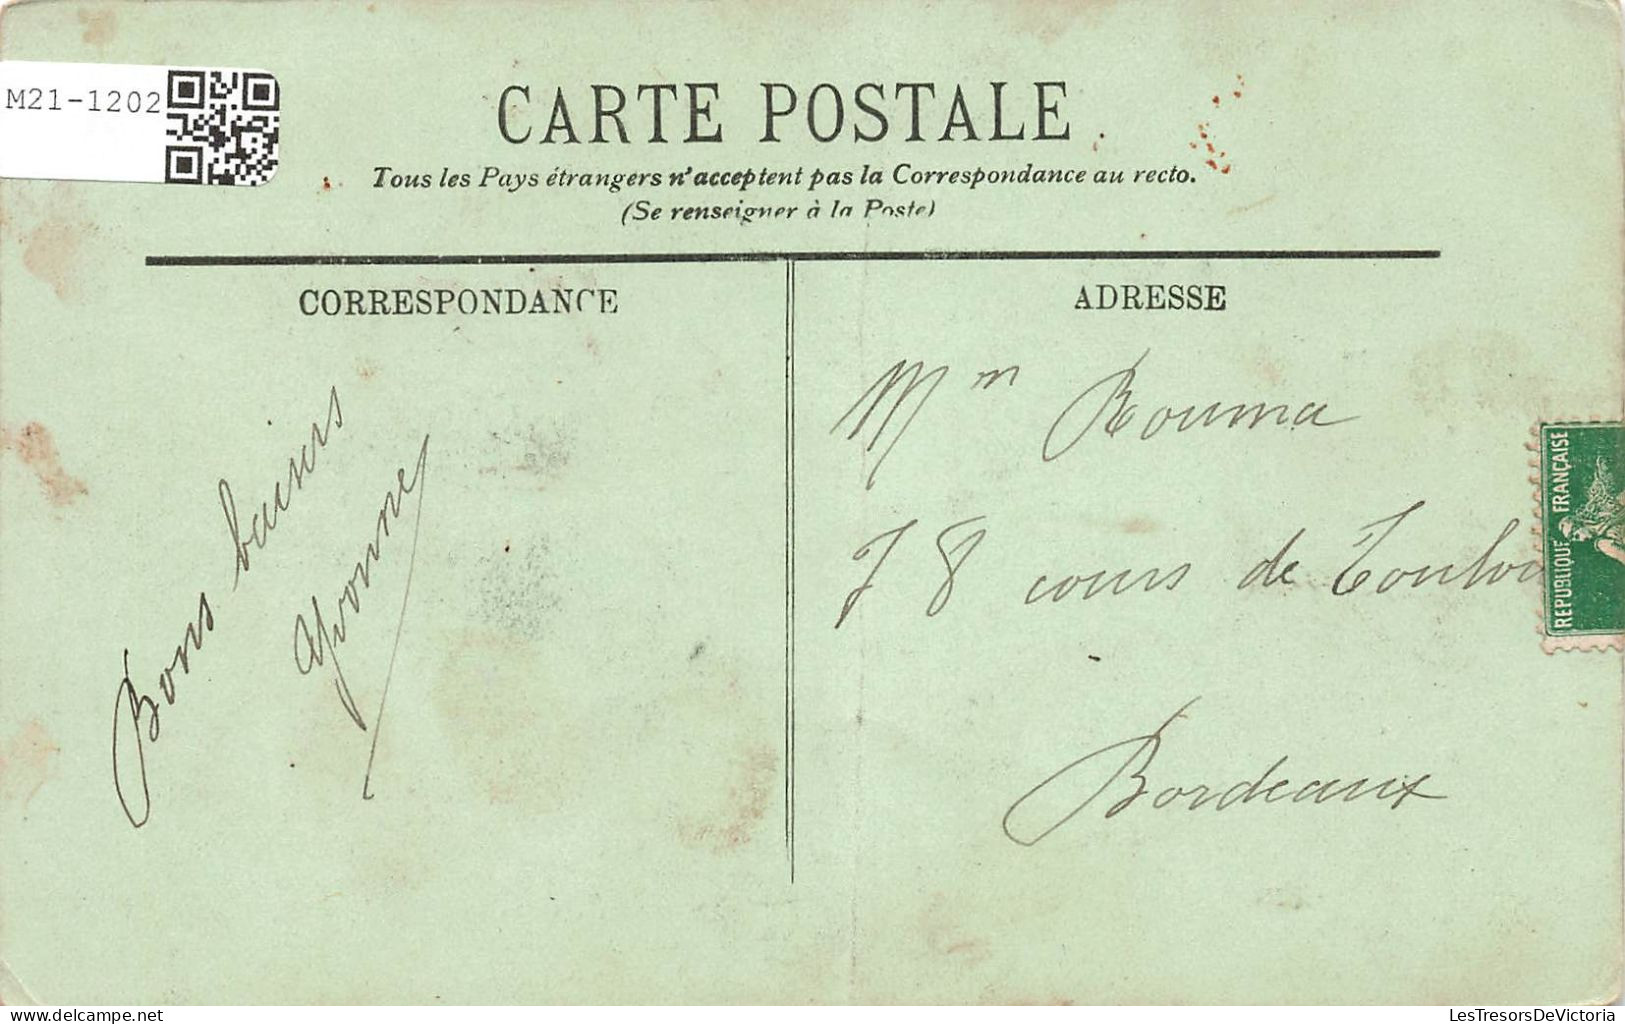 M21-1202
CARTE POSTALE
Tous les Pays étrangers n'acceptent pas la Correspondance au recto.
(Se renseigner à la Poste)
CORRESPONDANCE
ADRESSE
Bons baisers
Yvonne
Mm Rouma
78 cours de Toulou
Bordeaux
REPUBLIQUE FRANÇAISE
delcampe.net
LesTresorsDeVictoria